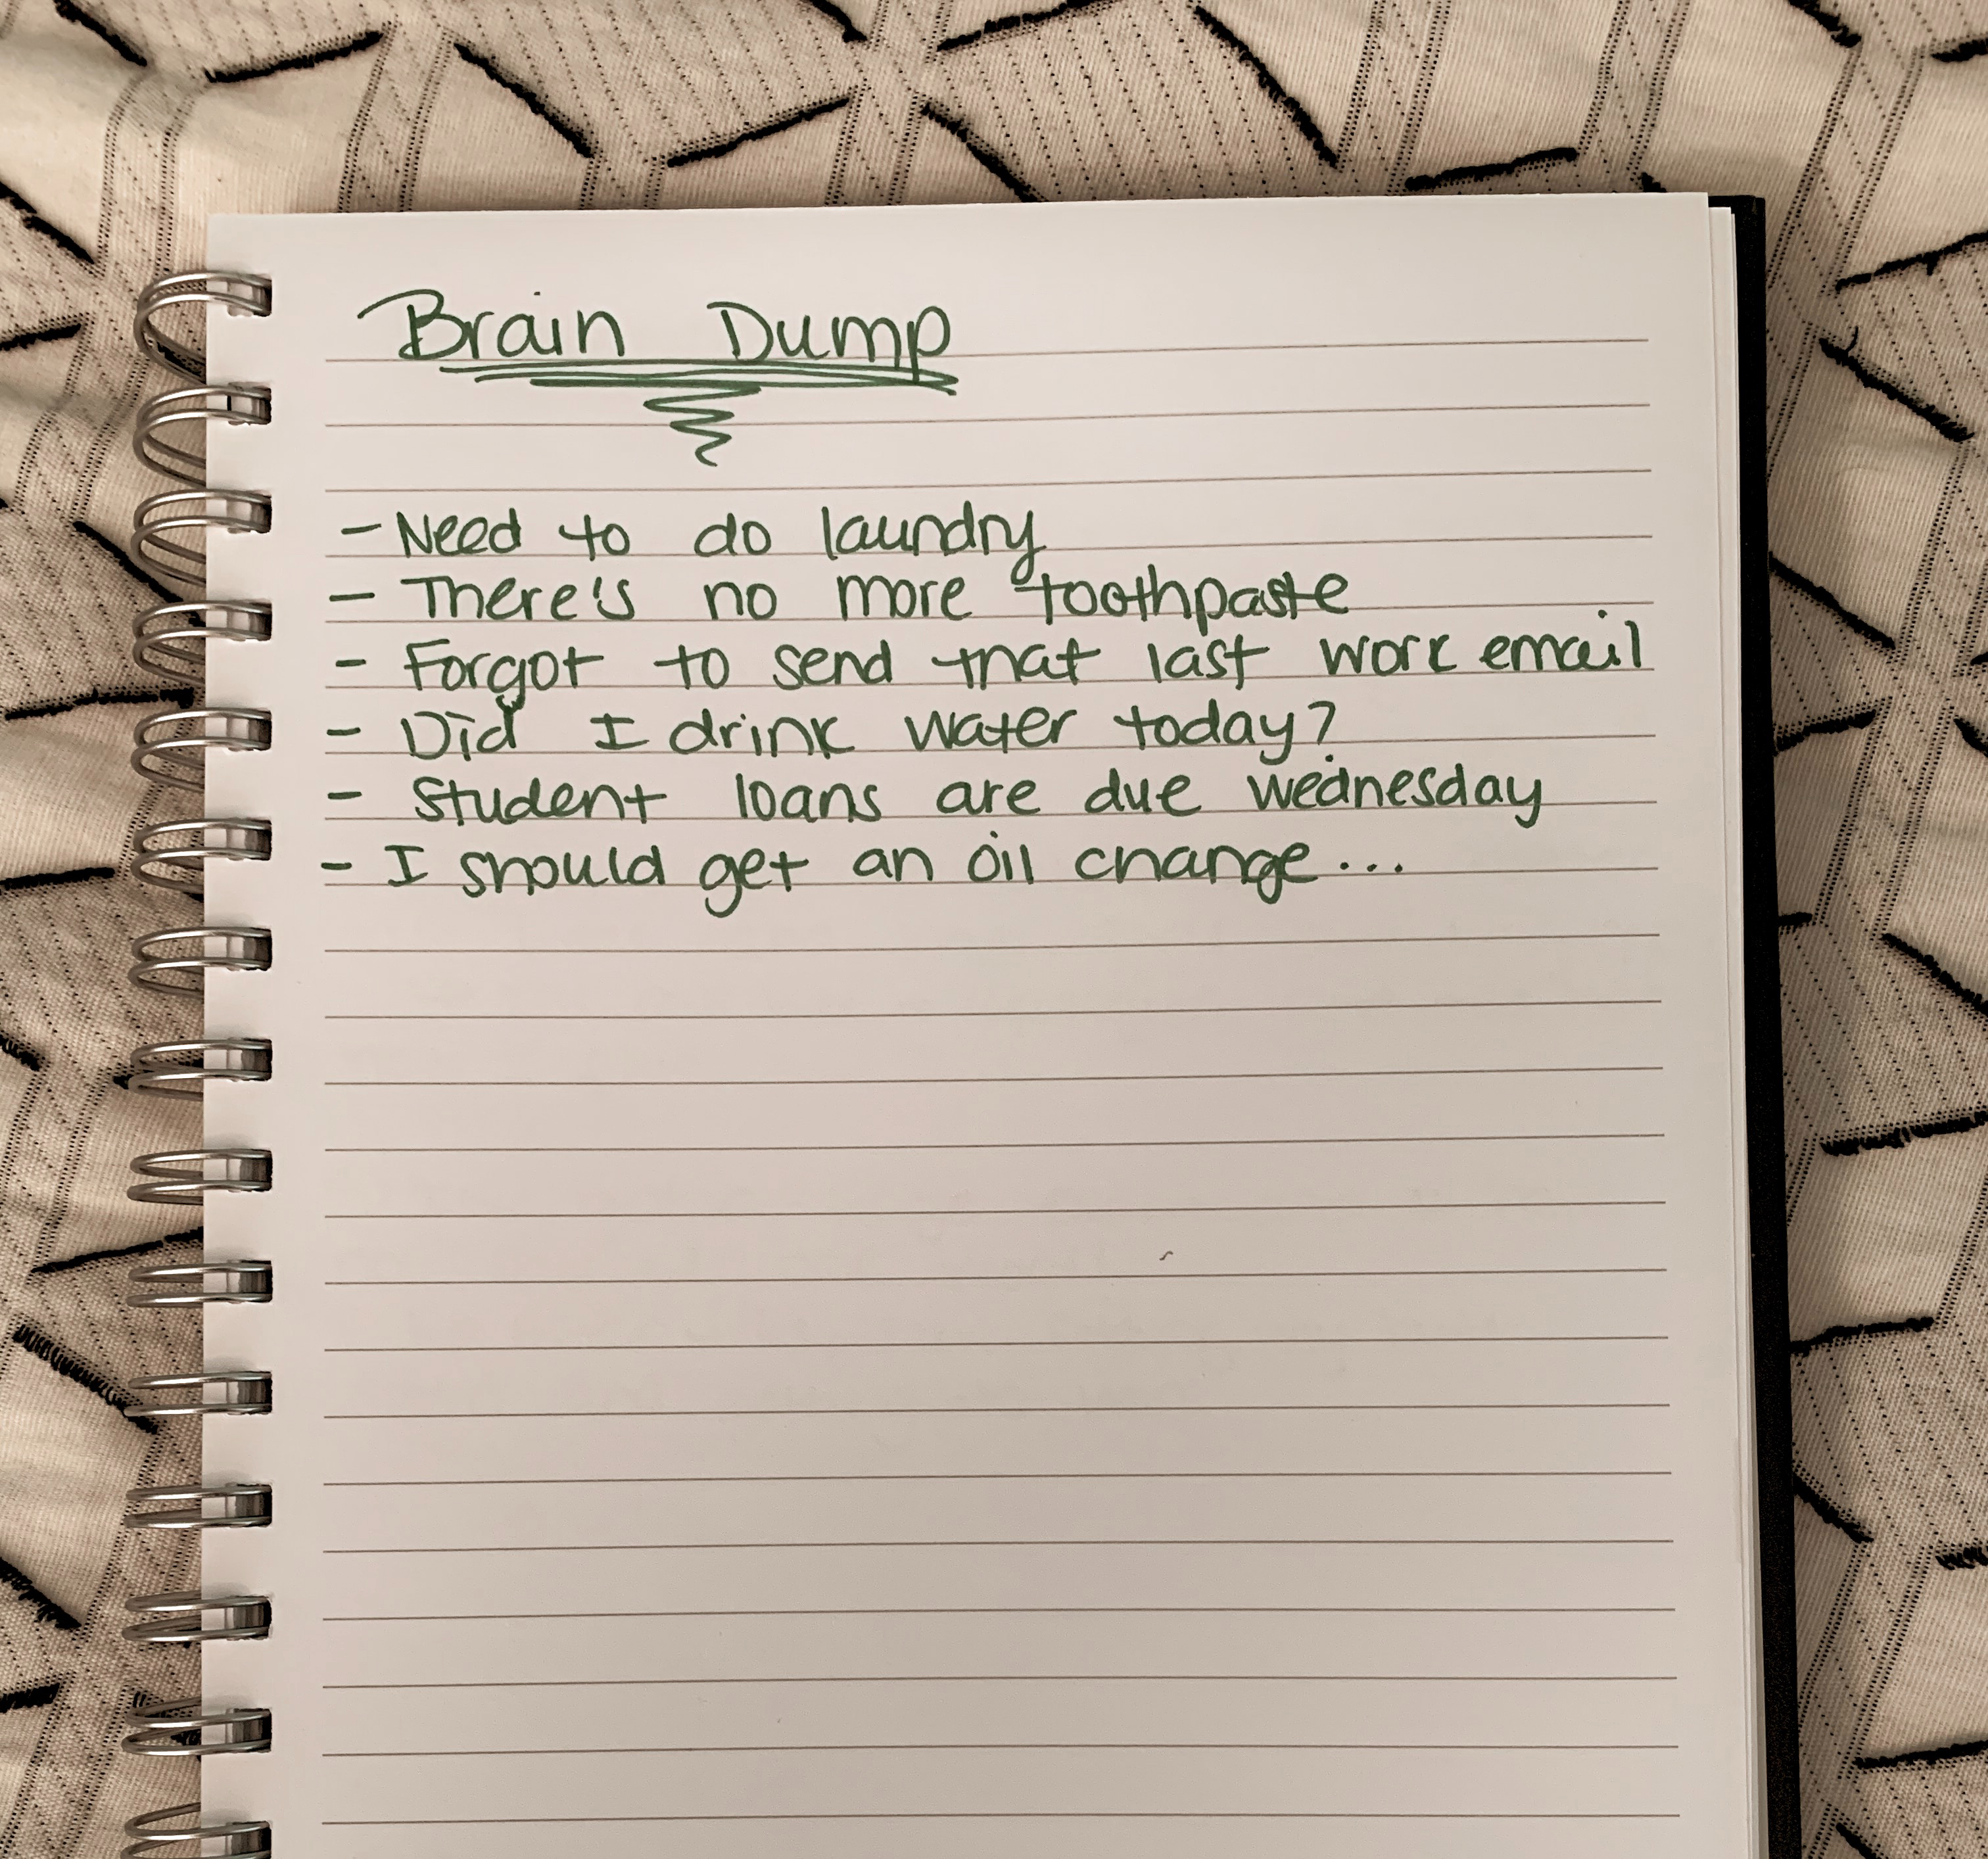 Brain Dump
- Need to do laundry
- There's no more toothpaste
- Forgot to send that last work email
- Did I drink water today?
- Student loans are due wednesday
- I should get an oil change...